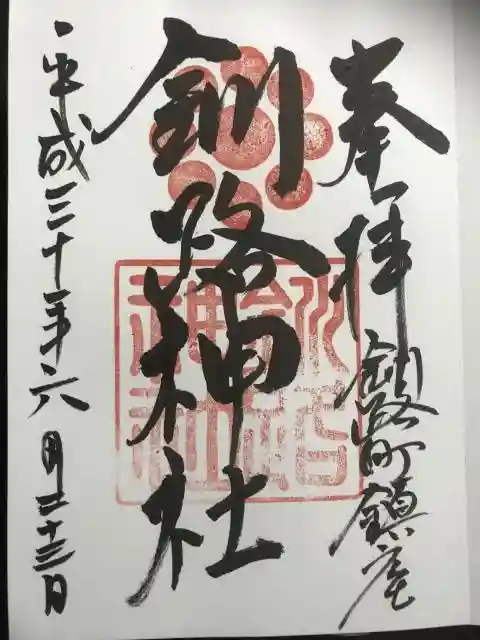 奉拝
釧路町鎮座
釧路神社
平成三十年六月二十三日